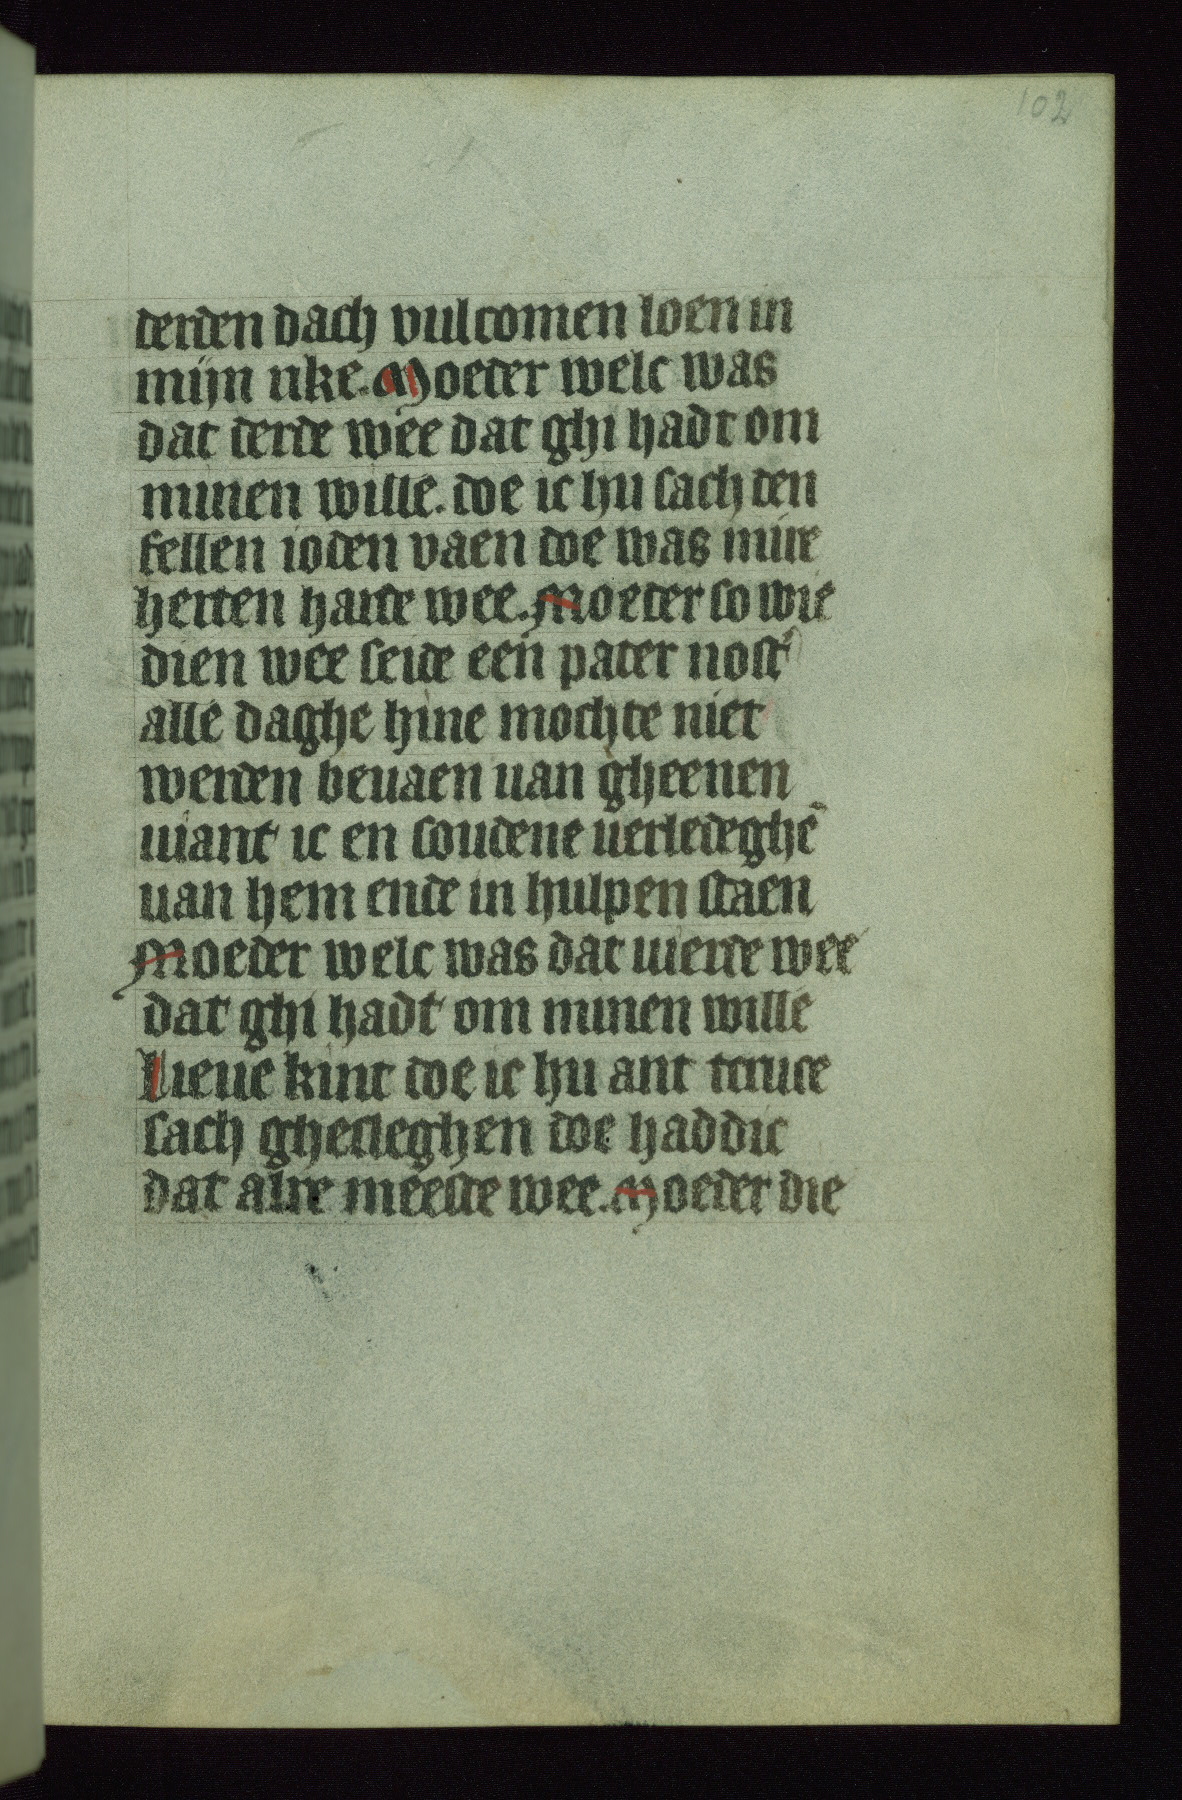 102
derden dach vulcomen loen in
mijn rike. Moeder welc was
dat derde wee dat ghi hadt om
minen wille. doe ic hu sach den
fellen ioden vaen doe was mire
herten harde wee. Moeder so wie
dien wee seide een pater nost'
alle daghe hine mochte niet
werden beuaen uan gheenen
uiant ic en soudene uerledeghē
uan hem ende in hulpen staen
Moeder welc was dat uierde wee
dat ghi hadt om minen wille
Lieue kint doe ic hu ant cruce
sach ghesleghen doe haddic
dat alre meeste wee. Moeder die